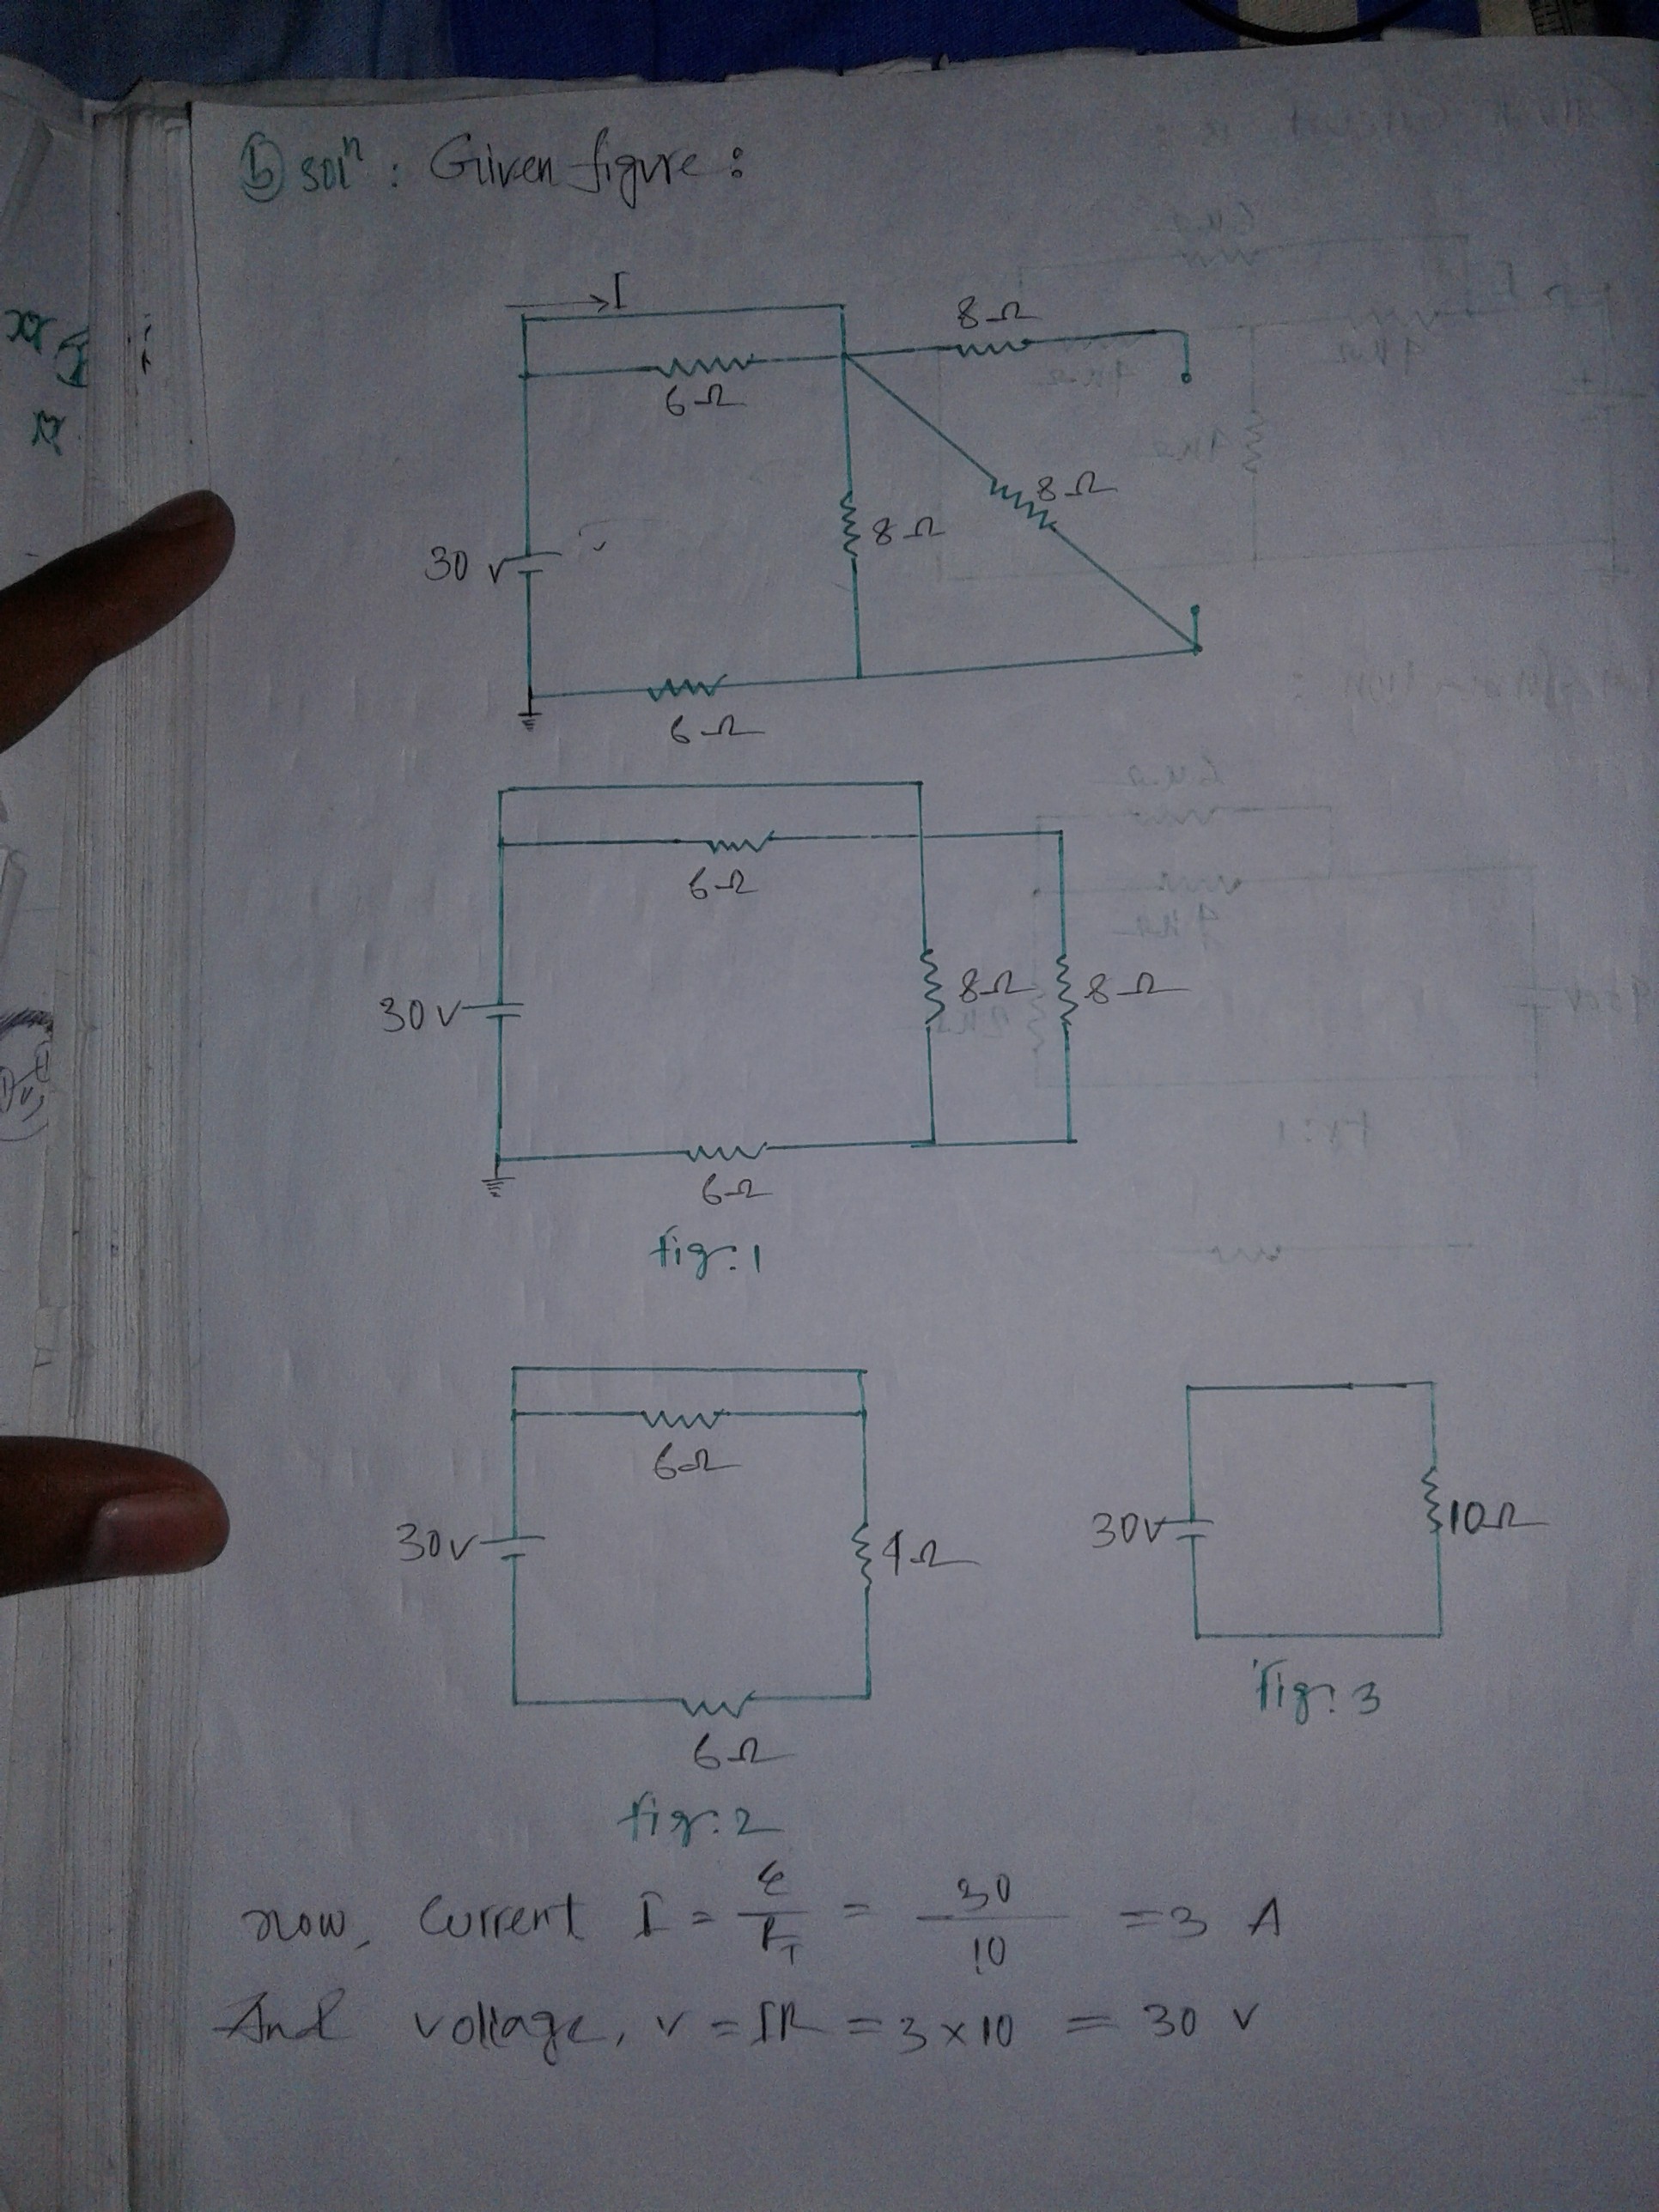 b solⁿ : Given figure :
I
8Ω
6Ω
8Ω
8Ω
30 v
6Ω
6Ω
30 v
8Ω 8Ω
6Ω
fig: 1
6Ω
30v
4Ω
30v
10Ω
fig: 3
6Ω
fig: 2
now, Current I = E/R_T = 30/10 = 3 A
And voltage, v = IR = 3 × 10 = 30 v